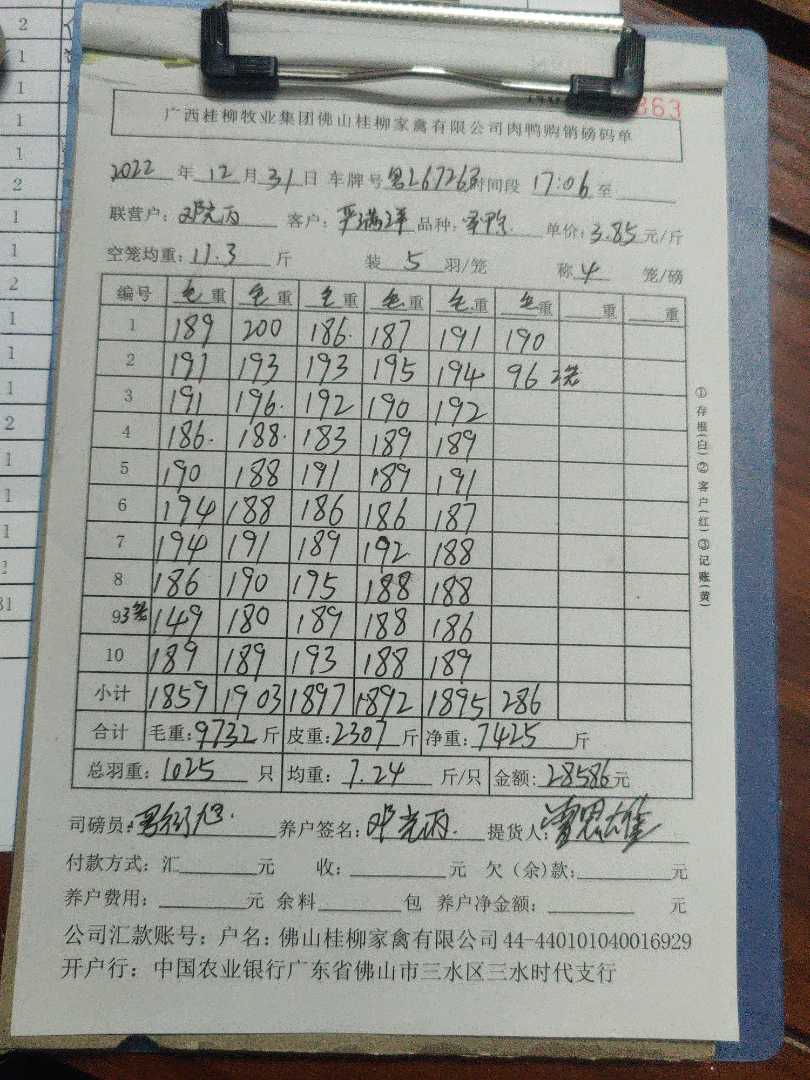 363
广西桂柳牧业集团佛山桂柳家禽有限公司肉鸭购销磅码单
2022 年 12 月 31 日 车牌号 粤L6726 时间段 17:06 至
联营户: 邓光丙 客户: 严满洋 品种: 单价: 3.85 元/斤
空笼均重: 11.3 斤 装 5 羽/笼 称 4 笼/磅
编号 毛重 毛重 毛重 毛重 毛重 毛重 重 重
1 189 200 186. 187 191 190
2 191 193 193 195 194 96 2笼
3 191 196. 192 190 192
4 186. 188. 183 189 189
5 190 188 191 189 191
6 194 188 186 186 187
7 194 191 189 192 188
8 186 190 195 188 188
9 3笼 149 180 189 188 186
10 189 189 193 188 189
小计 1859 1903 1897 1892 1895 286
合计 毛重: 9732 斤 皮重: 2307 斤 净重: 7425 斤
总羽重: 1025 只 均重: 7.24 斤/只 金额: 28586 元
司磅员: 养户签名: 邓光丙. 提货人: 曹思雄
付款方式: 汇 元 收: 元 欠(余)款: 元
养户费用: 元 余料 包 养户净金额: 元
公司汇款账号: 户名: 佛山桂柳家禽有限公司 44-440101040016929
开户行: 中国农业银行广东省佛山市三水区三水时代支行
①存根(白)②客户(红)③记账(黄)
2
1
1
1
1
2
1
1
2
1
1
1
2
1
1
1
2
31